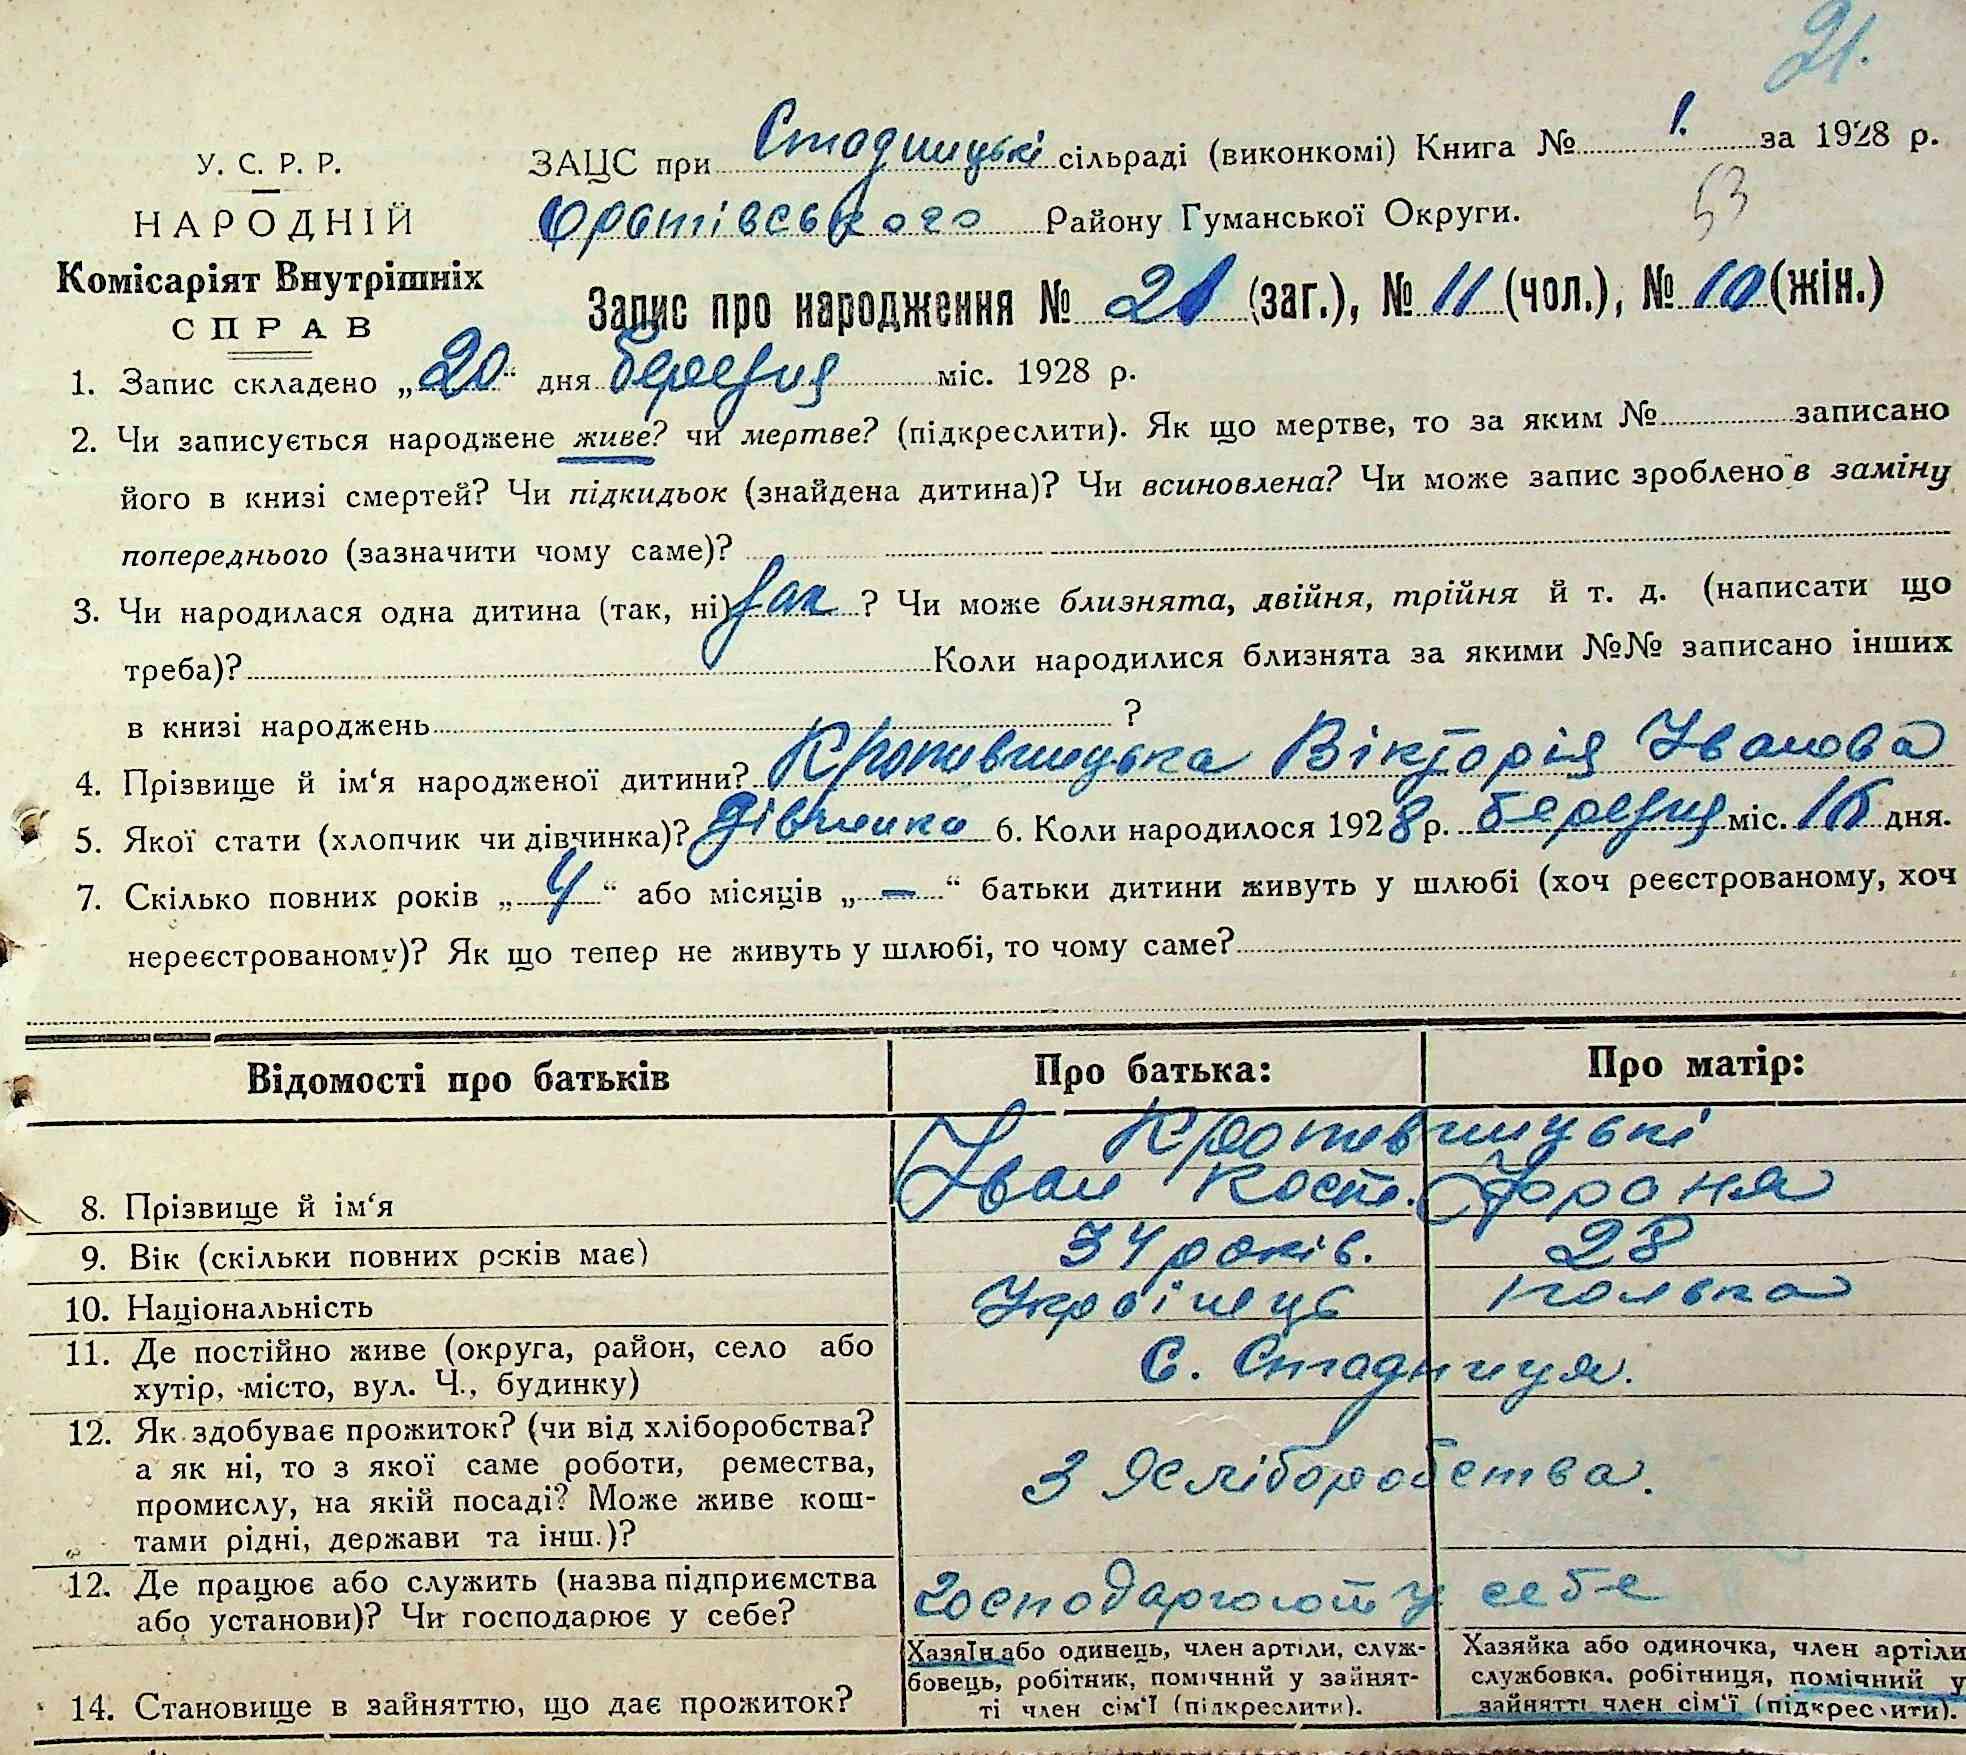 21.
У. С. Р. Р.
НАРОДНІЙ
Комісаріят Внутрішніх
СПРАВ
ЗАЦС при Стадницькі сільраді (виконкомі) Книга № 1. за 1928 р.
Оратівського Району Гуманської Округи.
53
Запис про народження № 21 (заг.), № 11 (чол.), № 10 (жін.)
1. Запис складено „20“ дня березня міс. 1928 р.
2. Чи записується народжене живе? чи мертве? (підкреслити). Як що мертве, то за яким № записано
його в книзі смертей? Чи підкидьок (знайдена дитина)? Чи всиновлена? Чи може запис зроблено в заміну
попереднього (зазначити чому саме)?
3. Чи народилася одна дитина (так, ні) так ? Чи може близнята, двійня, трійня й т. д. (написати що
треба)? Коли народилися близнята за якими №№ записано інших
в книзі народжень ?
4. Прізвище й ім‘я народженої дитини? Кропивницька Вікторія Іванова
5. Якої стати (хлопчик чи дівчинка)? дівчинка 6. Коли народилося 1928 р. березня міс. 16 дня.
7. Скілько повних років „4“ або місяців „—“ батьки дитини живуть у шлюбі (хоч реєстрованому, хоч
нереєстрованому)? Як що тепер не живуть у шлюбі, то чому саме?
Відомості про батьків Про батька: Про матір:
Кропивницькі
8. Прізвище й ім‘я Іван Кост. Фроня
9. Вік (скільки повних років має) 34 років. 28
10. Національність Українець полька
11. Де постійно живе (округа, район, село або
хутір, місто, вул. Ч., будинку) С. Стадниця.
12. Як здобуває прожиток? (чи від хліборобства?
а як ні, то з якої саме роботи, ремества,
промислу, на якій посаді? Може живе кош-
тами рідні, держави та інш.)? З Хліборобства.
12. Де працює або служить (назва підприємства
або установи)? Чи господарює у себе? господарюють у себе
14. Становище в зайняттю, що дає прожиток?
Хазяїн або одинець, член артіли, служ-
бовець, робітник, помічний у зайнят-
ті член сім‘ї (підкреслити).
Хазяйка або одиночка, член артіли
службовка, робітниця, помічний у
зайнятті член сім‘ї (підкреслити).